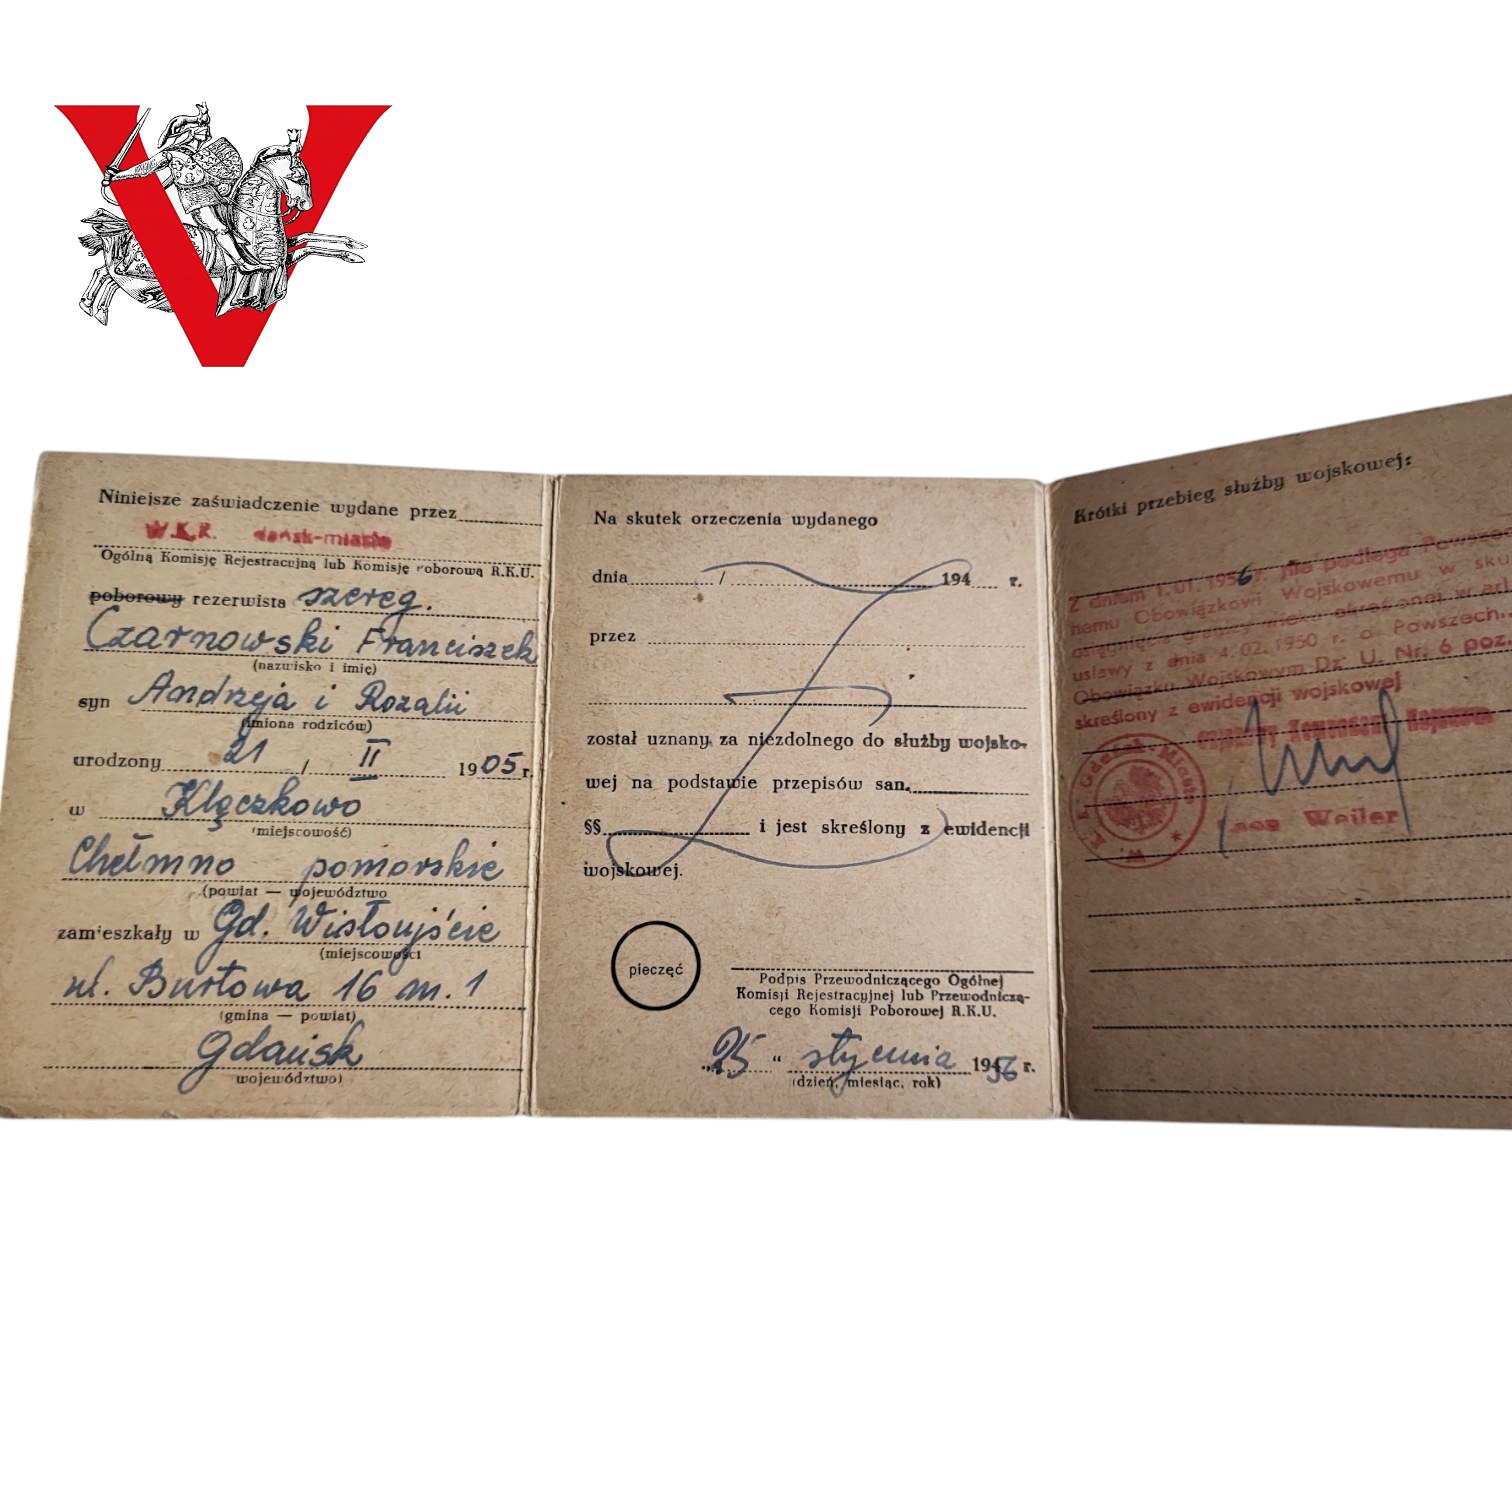 V
Niniejsze zaświadczenie wydane przez
W.K.R. dańsk-miasto
Ogólną Komisję Rejestracyjną lub Komisję Poborową R.K.U.
poborowy rezerwista szereg.
Czarnowski Franciszek
(nazwisko i imię)
syn Andrzeja i Rozalii
(imiona rodziców)
urodzony 21 / II 1905 r.
w Klęczkowo
(miejscowość)
Chełmno pomorskie
(powiat — województwo
zamieszkały w Gd. Wisłoujście
(miejscowości
ul. Burtowa 16 m. 1
(gmina — powiat)
Gdańsk
województwo)
Na skutek orzeczenia wydanego
dnia / 194 r.
przez
został uznany za niezdolnego do służby wojsko-
wej na podstawie przepisów san.
§§ i jest skreślony z ewidencji
wojskowej.
pieczęć
Podpis Przewodniczącego Ogólnej
Komisji Rejestracyjnej lub Przewodniczą-
cego Komisji Poborowej R.K.U.
„25 " stycznia 1956 r.
(dzień, miesiąc, rok)
Krótki przebieg służby wojskowej:
Z dniem 1.01.1956 r. nie podlega Powszec
hemu Obowiązkowi Wojskowemu w sku
osiągnięcia granicy wieku określonej w art
ustawy z dnia 4.02.1950 r. o Powszech.
Obowiązku Wojskowym Dz. U. Nr. 6 poz.
skreślony z ewidencji wojskowej
Weiler
W. K. R. Gdańsk Miasto